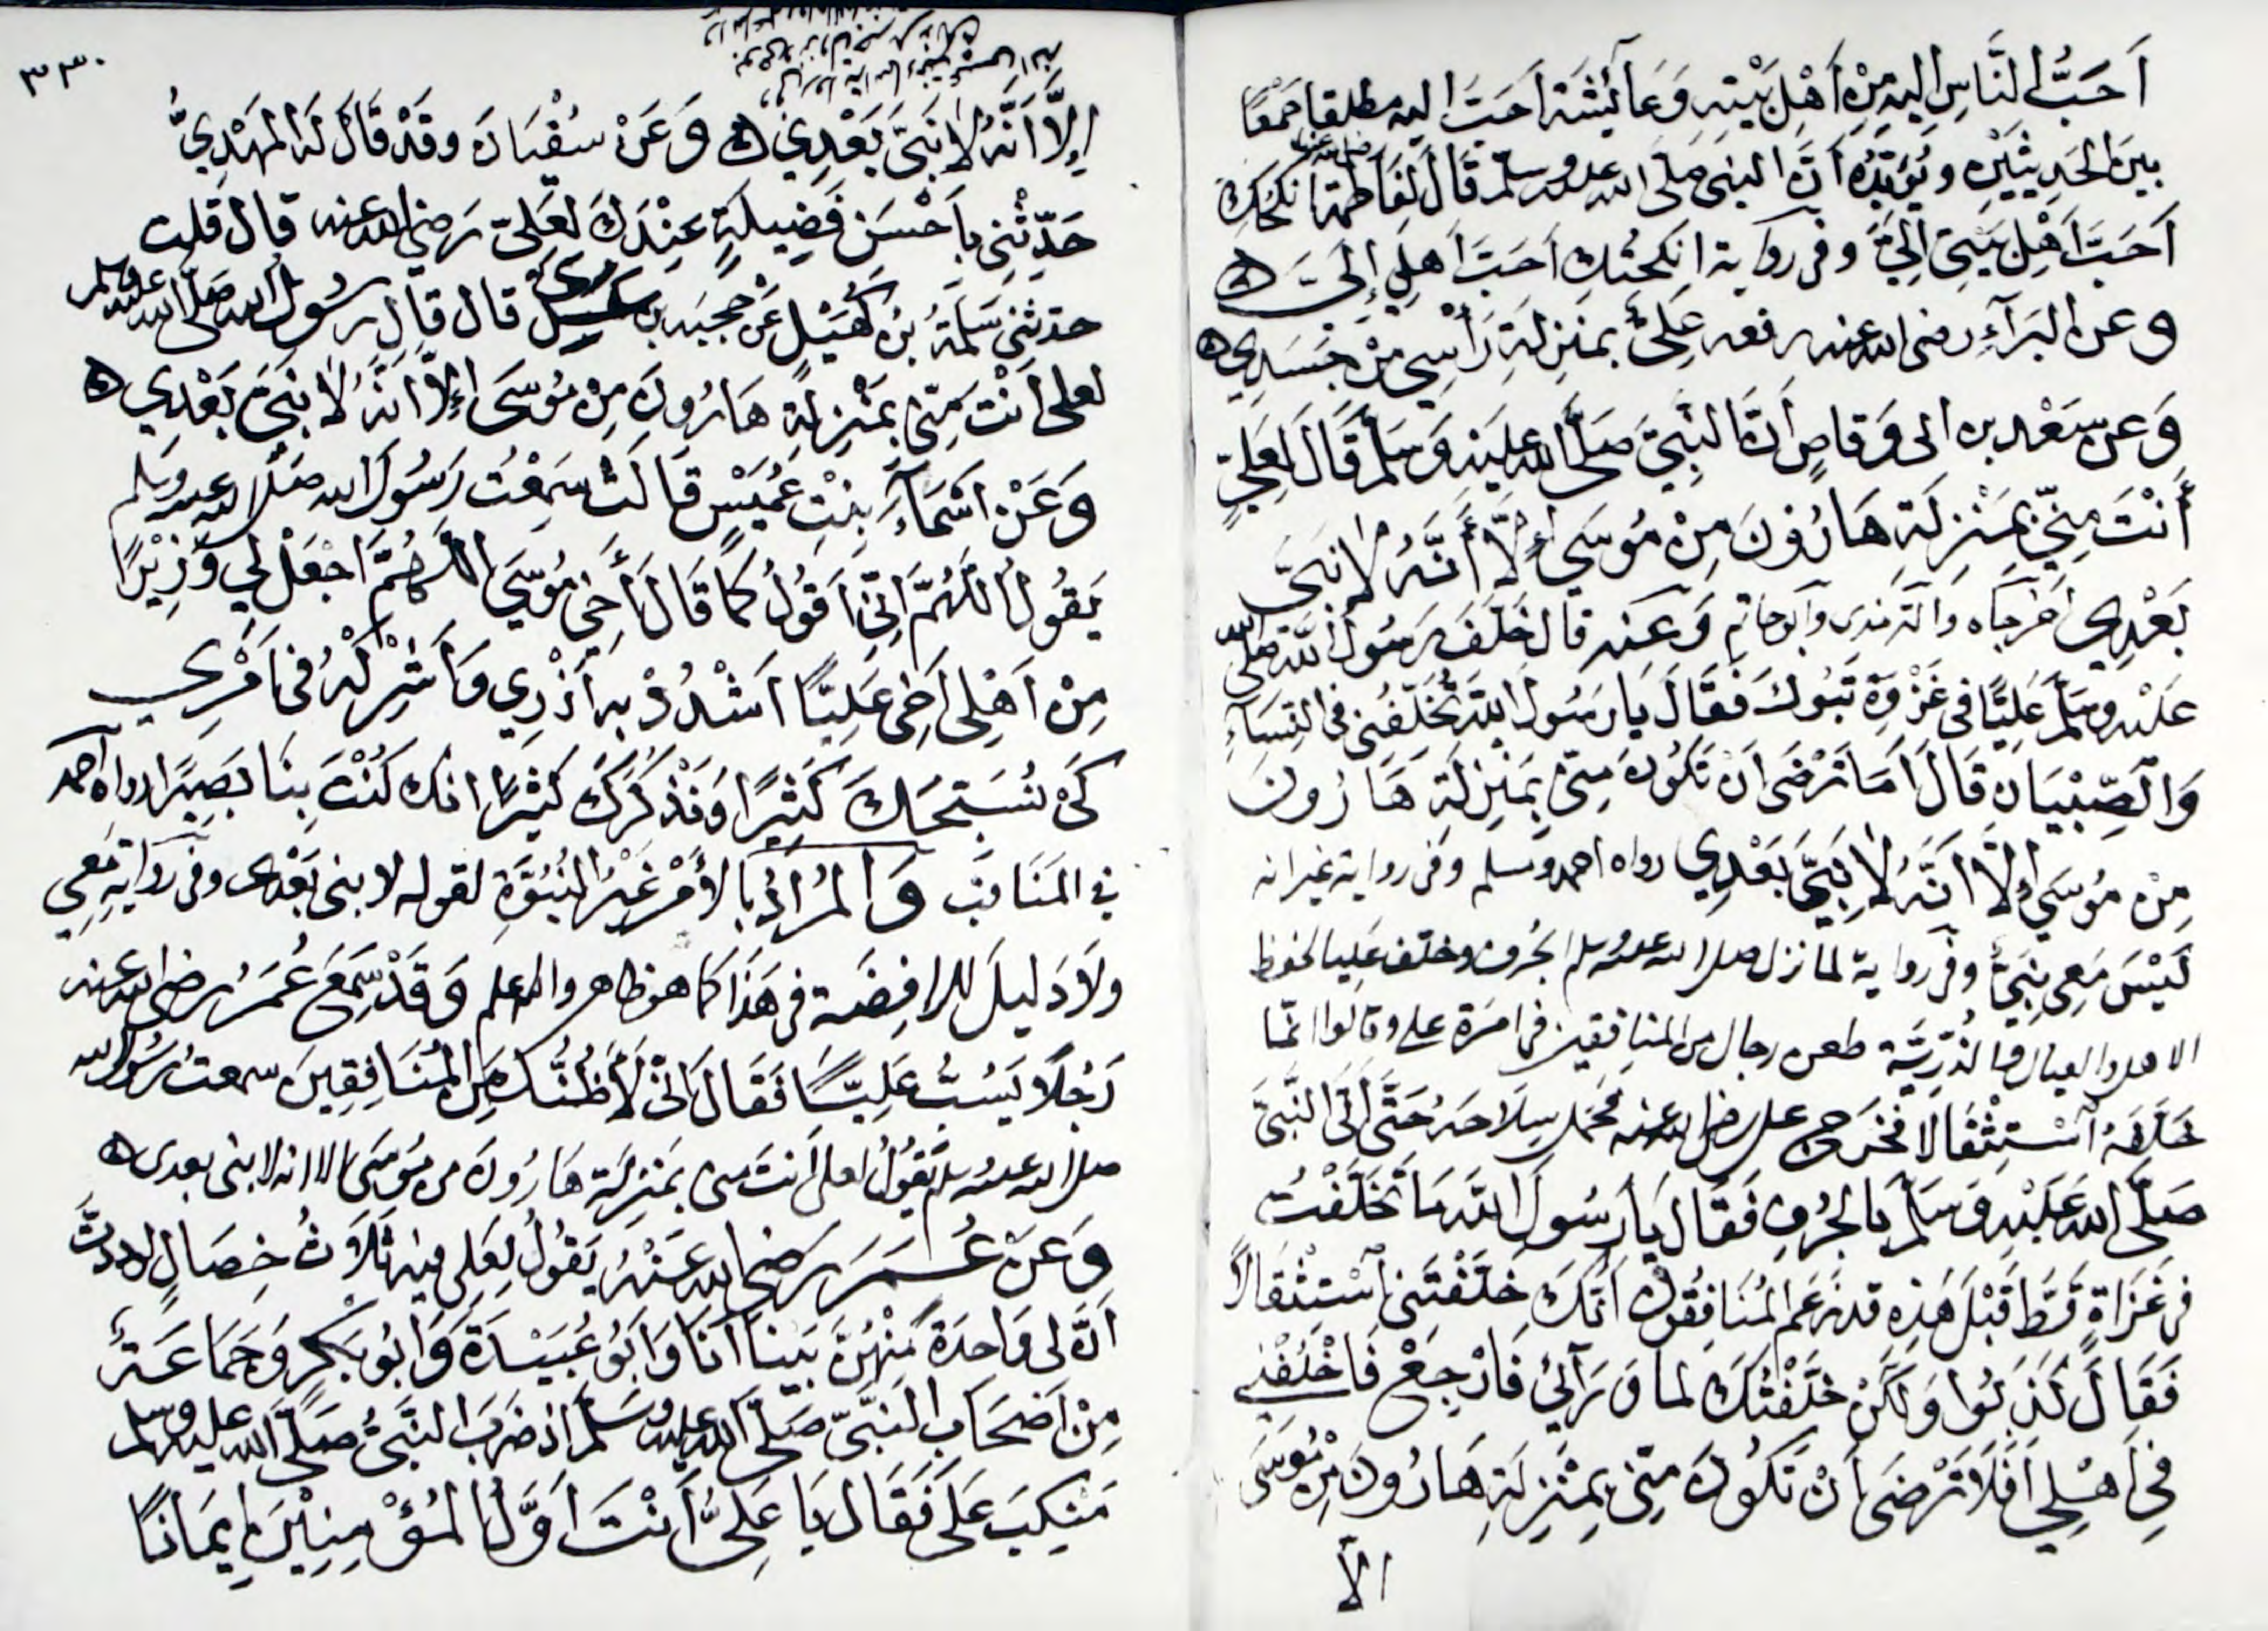 أَحَبَّ النَّاسِ اليه مِنْ أَهْلِ بَيْتِهِ وَعَائِشَةَ أَحَبَّ اليه مطلقا جَمْعًا
بَيْنَ الحَدِيثَيْنِ وَيُؤَيِّدُهُ أَنَّ النبي صَلَّى الله عليه وسلم قَالَ لِفَاطِمَة رضي الله عنها أنكحتك
أَحَبَّ أَهْلِ بَيْتِي إِلَيَّ وفي رواية انكحتك أحَبَّ أَهْلِي إِلَيَّ ه
وعن البَرَآءِ رضي الله عنه رفعه عَلِيٌّ بِمَنْزِلَةِ رَأْسِي مِنْ جَسَدِي ه
وَعن سَعْد بن ابي وَقاصٍ أَنَّ النَّبِيَّ صَلَّى الله عليه وَسَلَّم قَالَ لِعَلِيٍّ
أَنْتَ مِنِّي بِمَنْزِلَةِ هَارُونَ مِنْ مُوسَى إِلَّا أَنَّهُ لَا نَبِيَّ
بَعْدِي أخرجاه والترمذي وأبو حاتم وَعَنه قال خَلَّفَ رَسُولُ اللَّه صلى الله
عليه وسلم عَلِيًّا في غَزْوَةِ تَبُوكَ فَقَالَ يَا رَسُولَ اللَّه تُخَلِّفُنِي في النِّسَآءِ
وَالصِّبْيَانِ قَالَ أَمَا تَرْضَى أَنْ تَكُونَ مِنِّي بِمَنْزِلَةِ هَارُونَ
مِنْ مُوسَى إِلَّا أَنَّهُ لَا نَبِيَّ بَعْدِي رواه احمد ومسلم وفي رواية غير انه
لَيْسَ مَعِي نَبِيٌّ وفي رواية لما نزل صلى الله عليه وسلم الجُرف وخلف عَلِيا لحفظ
الاهل والعيال والذُّرِّيَّة طعن رجال من المنافقين في امرة علي وقالوا انما
خَلَّفَهُ اسْتِثْقَالا فَخَرَجَ علي رضي الله عنه فحمل سِلَاحَهُ حَتَّى أَتَى النَّبِيَّ
صَلَّى الله عَلَيْهِ وَسَلَّم بالجُرفِ فَقَالَ يَا رَسُولَ اللَّه مَا تَخَلَّفْتُ
في غَزَاةٍ قَطُّ قَبْلَ هَذِهِ قد زَعَمَ المُنَافِقُونَ أَنَّكَ خَلَّفْتَنِي اسْتِثْقَالًا
فَقَالَ كَذَبُوا وَلكِنْ خَلَّفْتُكَ لما وَرَآئِي فَارْجِعْ فَاخْلُفْنِي
فِي أَهْلِي أَفَلَا تَرْضَى أَنْ تَكُونَ مِنِّي بِمَنْزِلَةِ هَارُونَ مِنْ مُوسَى
الاّ
٣٣٠
إِلَّا أَنَّهُ لَا نَبِيَّ بَعْدِي ه وَعَنْ سُفْيَانَ وقَدْ قَالَ لَهُ المَهْدِيُّ
حَدِّثْنِي بأَحْسَنِ فَضِيلَةٍ عِنْدَكَ لِعَلِيّ رَضي الله عنه قال قلت
حدثني سَلَمَةُ بنُ كُهَيْلٍ عَنْ حجيه بن عدي قال قال رسُولُ الله صلى الله عليه وسلم
لعلي أَنْتَ مِنِّي بِمَنْزِلَةِ هَارُونَ مِنْ مُوسَى إِلَّا أَنَّهُ لَا نَبِيَّ بَعْدِي ه
وَعَنْ أَسْمَآءَ بِنْتِ عُمَيْسٍ قَالَتْ سَمِعْتُ رَسُولَ الله صَلى الله عليه وسلم
يَقُولُ اللَّهُمَّ إِنِّي أَقُولُ كَمَا قَالَ أَخِي مُوسَى اللَّهُمَّ اجْعَلْ لِي وَزِيْرًا
مِنْ أَهْلِي أَخِي عَلِيًّا اشْدُدْ بِهِ أَزْرِي وَأَشْرِكْهُ فِي أَمْرِي
كَيْ نُسَبِّحَكَ كَثِيْرًا وَنَذْكُرَكَ كَثِيْرًا انك كُنْتَ بِنَا بَصِيْرًا رواه احمد
في المَنَاقِب وَالمُرَادُ بِالأَمْرِ غَيْرُ النُّبُوَّةِ لقوله لا نبي بَعْدِي وفي رواية مَعِي
ولَا دَلِيلَ للرافِضَةِ في هَذَا كما هو ظاهر والله اعلم وَقَدْ سَمِعَ عُمَرُ رضي الله عنه
رَجُلًا يَسُبُّ عَلِيًّا فَقَالَ إِنِّي لَأَظُنُّكَ مِنَ المُنَافِقِينَ سمعتُ رَسُولَ الله
صلى الله عليه وسلم يَقُولُ لعلي أَنتَ مني بِمَنْزِلَةِ هَارُونَ من مُوسَى الا انه لا نبي بعدي ه
وَعَنْ عُمَرَ رَضي الله عَنْهُ يَقُولُ لِعَلِي فيه ثَلَاثُ خِصَالٍ لوددتُّ
أَنَّ لي وَاحِدَةً مِنْهُنَّ بَيْنا أَنَا وَأَبُو عُبَيْدَةَ وَأَبُو بَكْرٍ وَجَمَاعَةٌ
مِنْ أَصْحَابِ النَّبِيِّ صَلَّى الله عليه وَسَلَّم إذ ضَرَبَ النَّبِيُّ صَلَّى الله عليه وسلم
مَنْكِبَ عَلَيَّ فَقَالَ يَا عَلِيُّ أَنْتَ أَوَّلُ المُؤْمِنِيْنَ إِيمَانًا